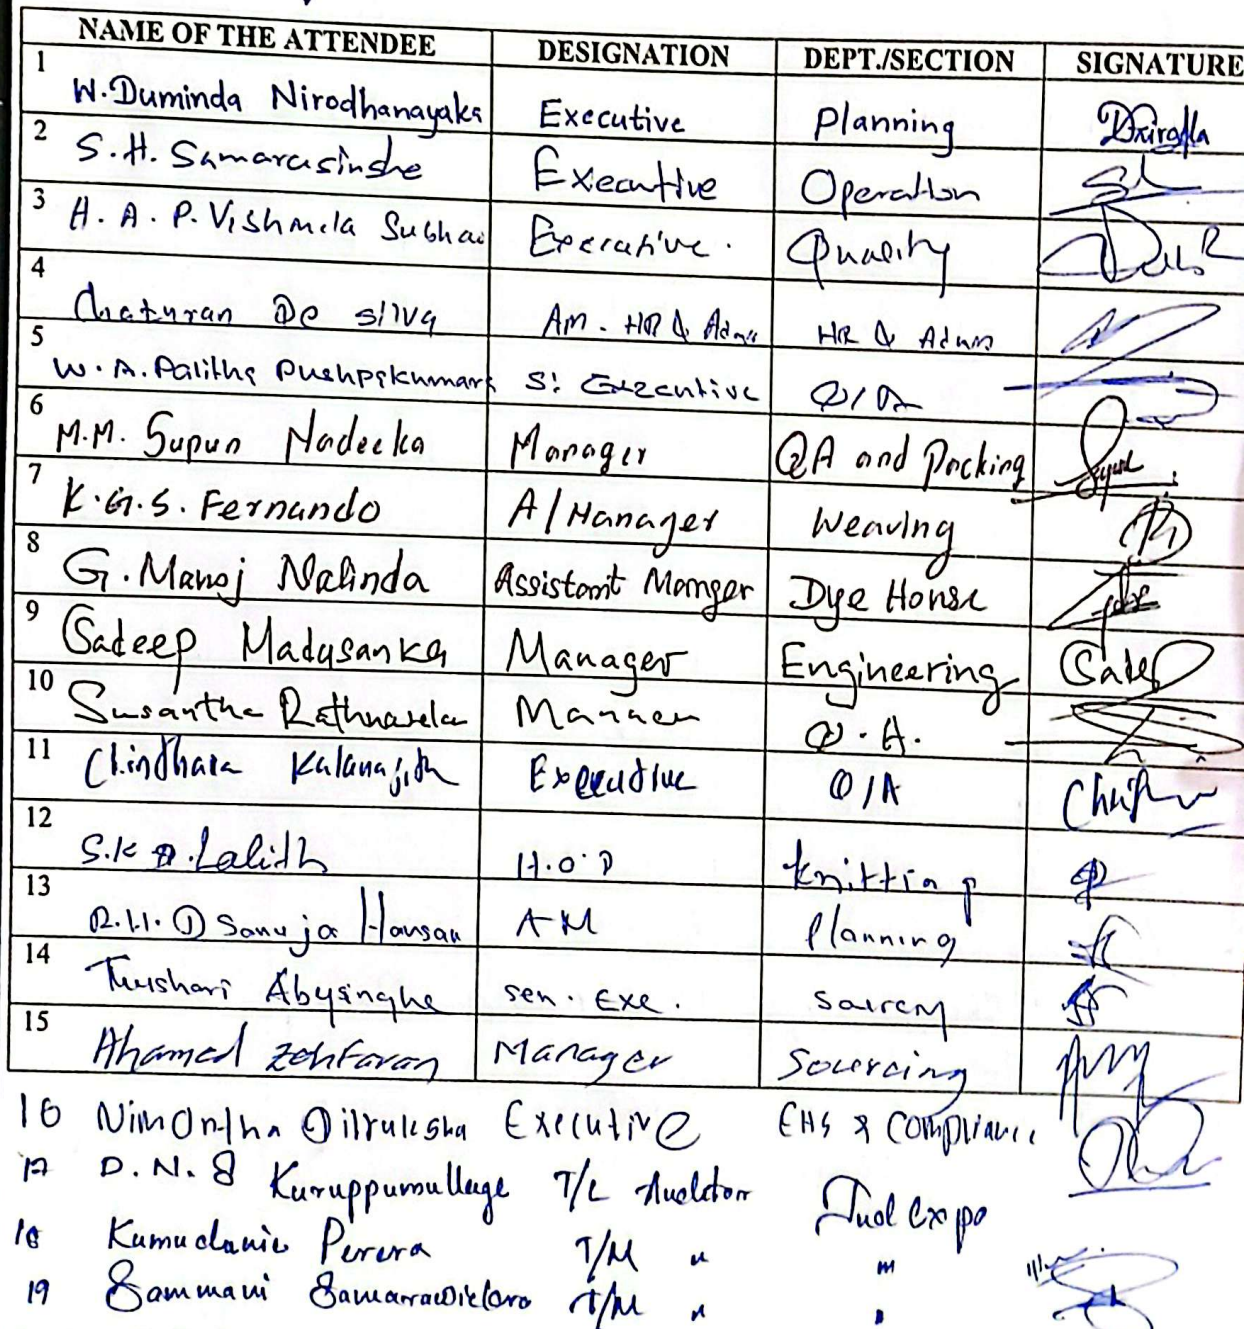 NAME OF THE ATTENDEE DESIGNATION DEPT./SECTION SIGNATURE
1 W. Duminda Nirodhanayaka Executive Planning
2 S. H. Samarasinghe Executive Operation
3 H. A. P. Vishmila Subhas Executive. Quality
4 Chaturan De Silva AM. HR & Admin HR & Admin
5 W. A. Palitha Pushpakumara S. Executive Q/A
6 M.M. Supun Nadeeka Manager QA and Packing
7 K.G.S. Fernando A/Manager Weaving
8 G. Manoj Nalinda Assistant Manger Dye House
9 Sadeep Madusanka Manager Engineering
10 Susantha Rathnavela Manager Q.A.
11 Chindhara Kalanajith Executive Q/A
12 S.K D. Lalith H.O.D Knitting
13 R.H. D Sanuja Hansan AM Planning
14 Thushari Abysinghe sen. Exe.
15 Ahamed Zohfaran Manager Sourcing
16 Nimantha Dilruksha Executive EHS & Compliance
17 D.N.S Kuruppumullage T/L Auditor Jual Expo
18 Kumudanie Perera T/M " "
19 Sammani Samarawickara T/M " "